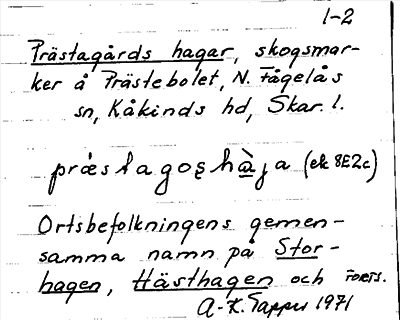 1-2
Prästagårds hagar, skogsmar-
ker å Prästebolet, N. Fågelås
sn, Kåkinds hd, Skar. l.
präs tagoʂ hàja (ek 8E2c)
Ortsbefolkningens gemen-
samma namn på Stor-
hagen, Hästhagen och Forts.
A-K. Tapper 1971